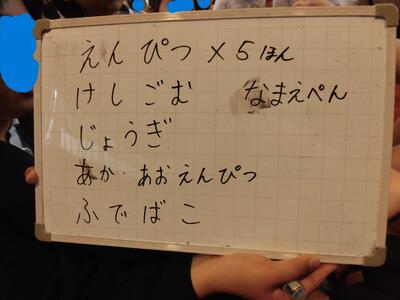 えんぴつ×5ほん
けしごむ なまえぺん
じょうぎ
あか・あおえんぴつ
ふでばこ